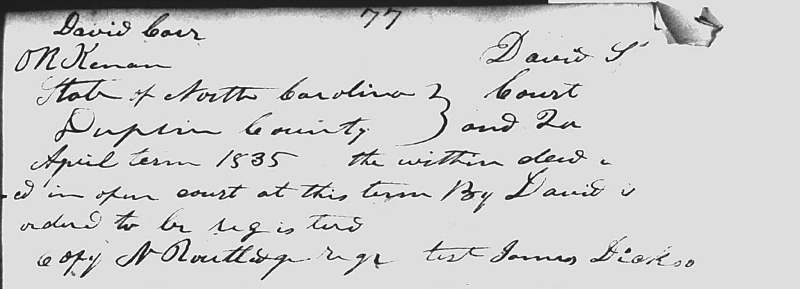 77
David Carr
O R Kenan David S
State of North Carolina } Court
Duplin County } and
April term 1835 the within deed
ed in open court at this term By David
ordered to be registerd
copy N Routledge regr test James Dickso